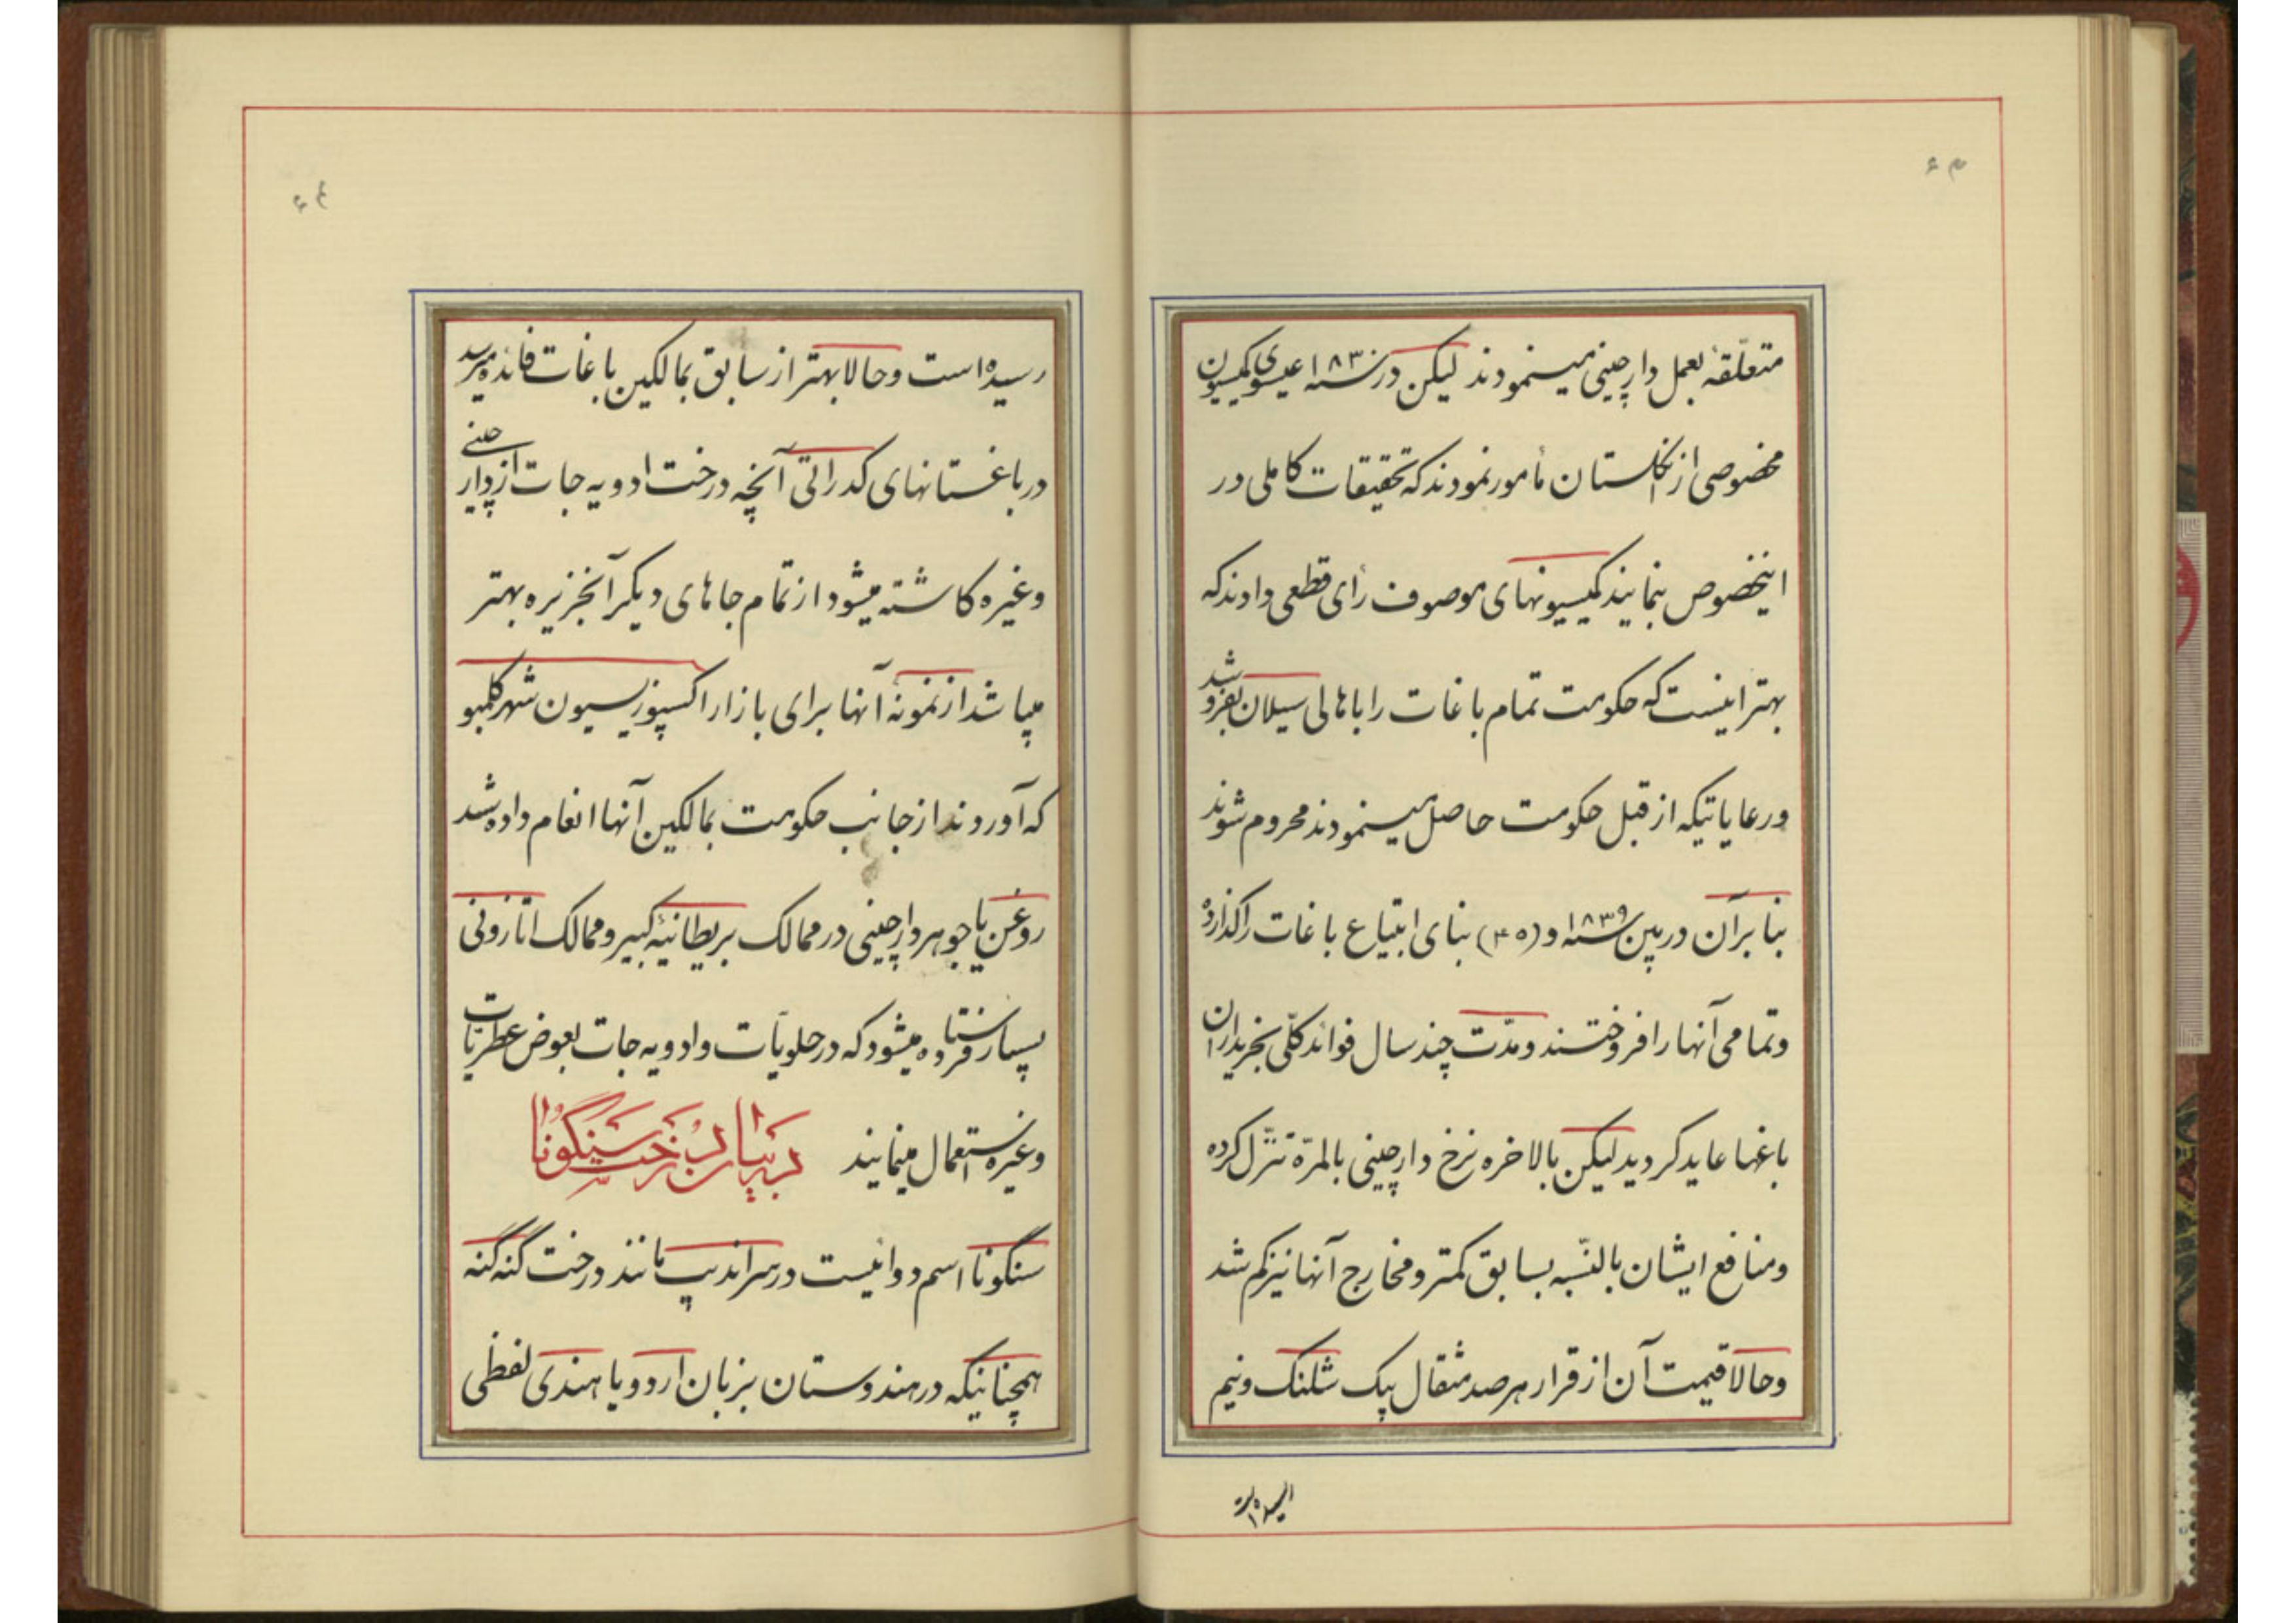 ۶۳
متعلّقهٔ بعمل دارچینی مینمودند لیکن در سنه ۱۸۳۰ عیسوی کمیسیون
مخصوصی از انگلستان مأمور نمودند که تحقیقات کاملی در
اینخصوص بنمایند کمیسیونهای موصوف رأی قطعی دادند که
بهتر اینست که حکومت تمام باغات را باهالی سیلان بفروشد
ورعایاتیکه از قبل حکومت حاصل مینمودند محروم شوند
بنا بر آن در بین سنه ۱۸۳۹ و (۴۵) بنای ابتیاع باغات را گذارده
وتمامی آنها را فروختند ومدّت چند سال فوائد کلّی بخریداران
باغها عاید کردید لیکن بالاخره نرخ دارچینی بالمرّه تنزّل کرده
ومنافع ایشان بالنّسبه بسابق کمتر ومخارج آنها نیز کم شد
وحالا قیمت آن از قرار هر صد مثقال یک شلنک ونیم
۶۴
رسیده است وحالا بهتر از سابق بمالکین باغات فائده میرسد
در باغستانهای کدراتی آنچه درخت ادویه جات از دارچینی
وغیره کاشته میشود از تمام جاهای دیکر آنجزیره بهتر
میباشد از نمونهٔ آنها برای بازار اکسپوزیسیون شهر کلمبو
که آوردند از جانب حکومت بمالکین آنها انعام داده شد
روغن یا جوهر دارچینی در ممالک بریطانیهٔ کبیر وممالک اتازونی
بسیار فرستاده میشود که در حلویّات وادویه جات بعوض عطریّات
وغیره استعمال مینمایند در بیان درخت سنگونا
سنگونا اسم دوائیست در سراندیب مانند درخت گنه گنه
همچنانیکه در هندوستان بزبان اردو یا هندی لفظی